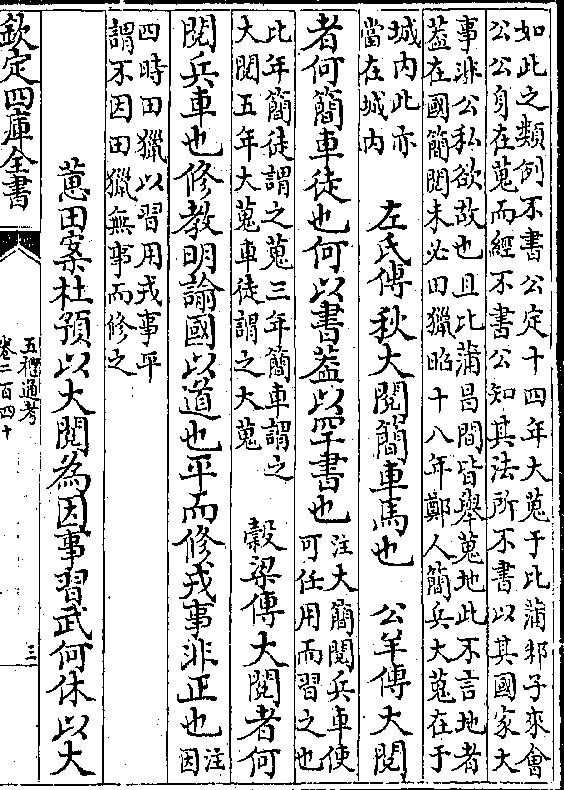 如此之類例不書公定十四年大蒐于比蒲邾子來會
公公身在蒐而經不書公知其法所不書以其國家大
事非公私欲故也且比蒲昌間皆舉蒐地此不言地者
葢在國簡閱未必田獵昭十八年鄭人簡兵大蒐在于
城内此亦
當在城内
左氏傳秋大閱簡車馬也 公羊傳大閱
者何簡車徒也何以書葢以罕書也
注大簡閱兵車使
可任用而習之也
比年簡徒謂之蒐三年簡車謂之
大閱五年大蒐車徒謂之大蒐
穀梁傳大閱者何
閱兵車也修教明諭國以道也平而修戎事非正也
注
因
四時田獵以習用戎事平
謂不因田獵無事而修之
蕙田案杜預以大閱為因事習武何休以大
欽定四庫全書
五禮通考
卷二百四十
三